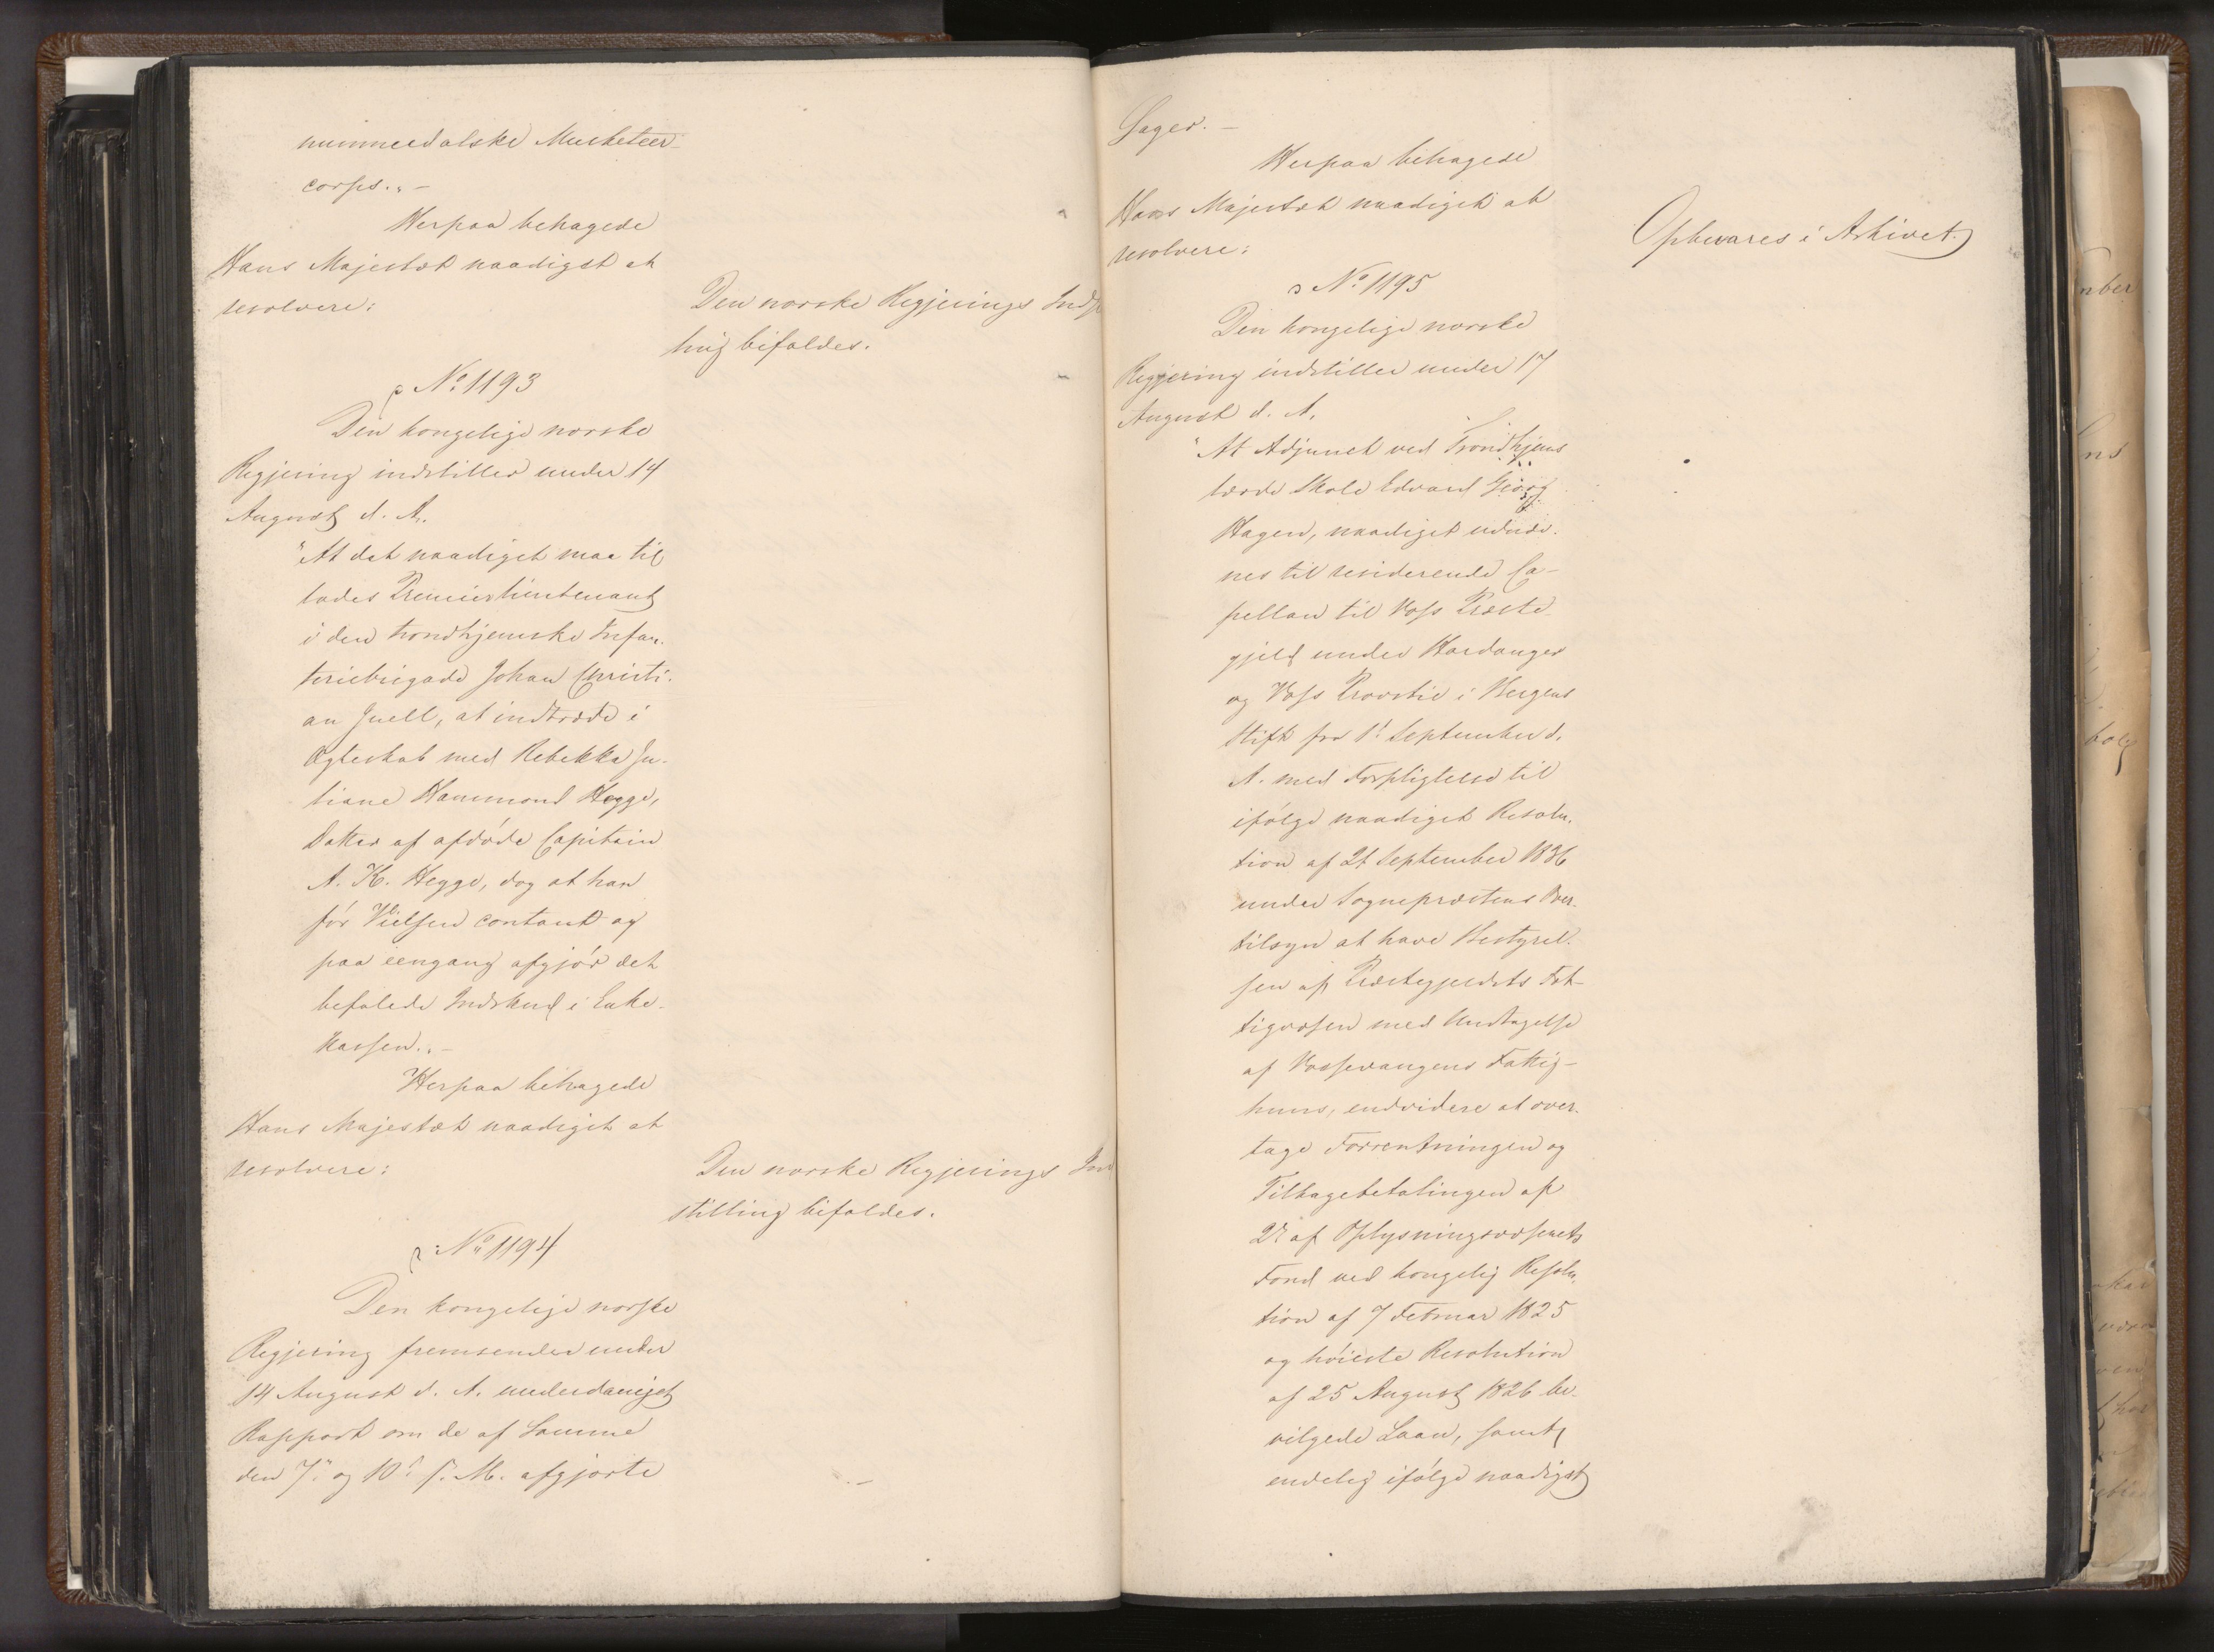 nummedalske Musketeer-
corps." -
Herpaa behagede
Hans Majestæt naadigst at
resolvere:
Den norske Regjerings Indst
ling bifaldes.
No 1193
Den kongelige norske
Regjering indstiller under 14
August d. A.
"At det naadigst maa til
lades Premierlieutenant
i den trondhjemske Infan-
teriebrigade Johan Christi-
an Juell, at indtræde i
Ægteskab med Rebekka Ju-
liane Hammond Hegge,
Datter af afdøde Capitain
A. K. Hegge, dog at han
før Vielsen contant og
paa eengang afgjør det
befalede Indskud i Enke-
kassen." -
Herpaa behagede
Hans Majestæt naadigst at
resolvere:
Den norske Regjerings Ind
stilling bifaldes.
No 1194
Den kongelige norske
Regjering fremsender under
14 August d. A. underdanigst
Rapport om de af Samme
den 7de og 10de s. M. afgjorte
Sager. -
Herpaa behagede
Hans Majestæt naadigst at
resolvere:
Opbevares i Arkivet.
No 1195
Den kongelige norske
Regjering indstiller under 17
August d. A.
"At Adjunct ved Trondhjems
lærde Skole Edvard Georg
Hagen, naadigst udnæv-
nes til residerende Ca-
pellan til Voss Præste-
gjeld under Hardanger
og Voss Provstie i Bergens
Stift fra 1ste September d.
A. med Forpligtelse til
ifølge naadigst Resolu-
tion af 21 September 1836
under Sognepræstens Over-
tilsyn at have Bestyrel-
sen af Præstegjeldets Fat-
tigvæsen med Undtagelse
af Vossevangens Fattig-
huus, endvidere at over-
tage Forrentningen og
Tilbagebetalingen af
2de af Oplysningsvæsenets
Fond ved kongelig Resolu-
tion af 7 Februar 1825
og høieste Resolution
af 25 August 1826 be-
vilgede Laan, samt
endelig ifølge naadigst